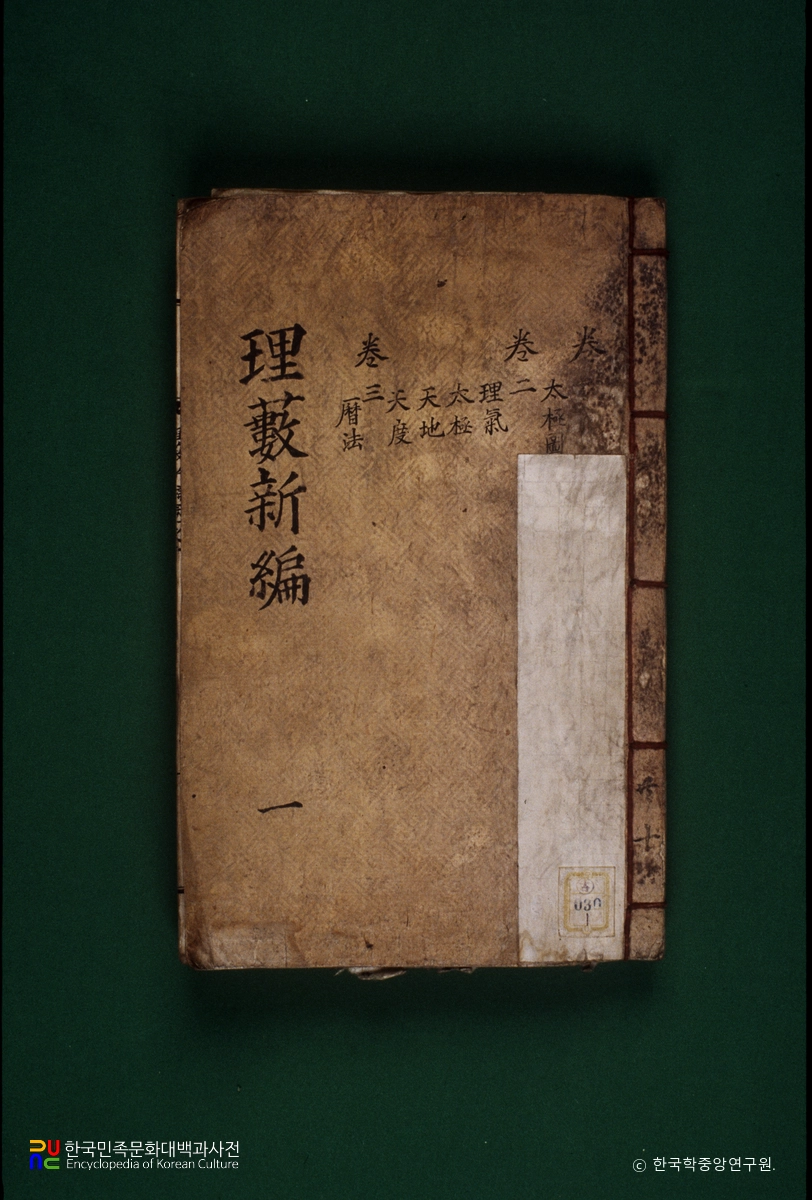 卷
太極圖
卷二
理氣
太極
天地
天度
卷三
曆法
理藪新編
一
共十
030
1
한국민족문화대백과사전
Encyclopedia of Korean Culture
© 한국학중앙연구원.